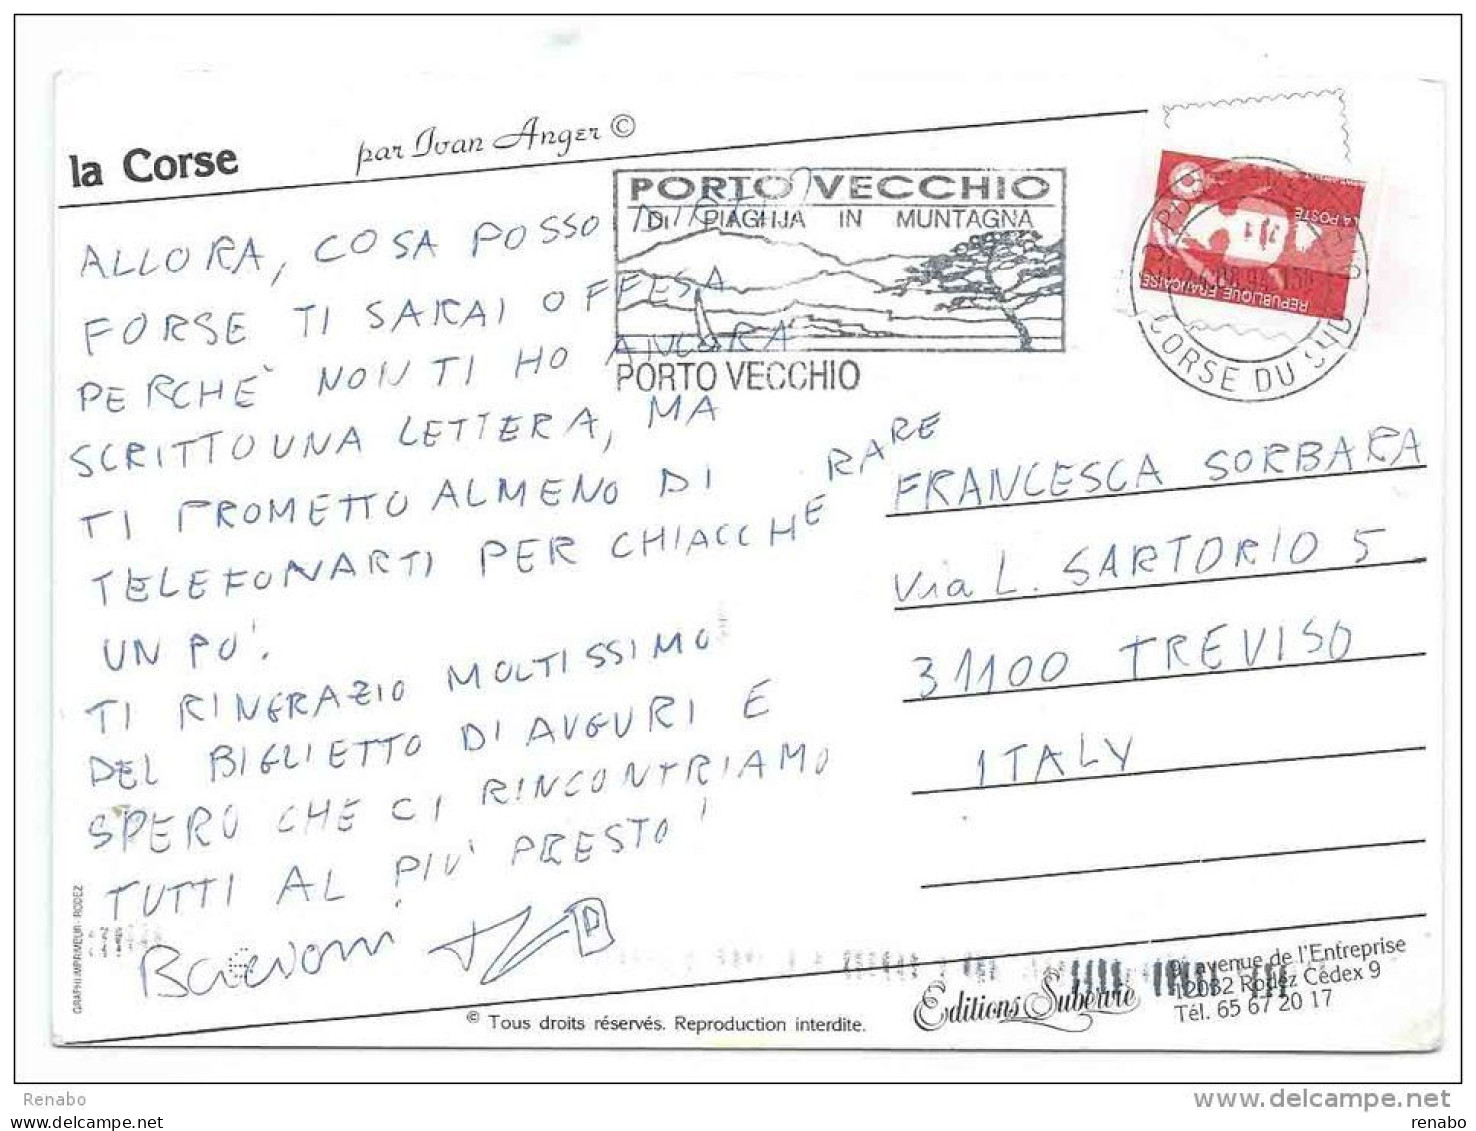 la Corse
par Ivan Anger ©
PORTO VECCHIO
DI PIAGHJA IN MUNTAGNA
PORTO VECCHIO
LA POSTE
REPUBLIQUE FRANÇAISE
CORSE DU SUD
ALLORA, COSA POSSO DIRTI?
FORSE TI SARAI OFFESA
PERCHÈ NON TI HO ANCORA
SCRITTO UNA LETTERA, MA
TI PROMETTO ALMENO DI
TELEFONARTI PER CHIACCHERARE
UN PO'.
TI RINGRAZIO MOLTISSIMO
DEL BIGLIETTO DI AUGURI E
SPERO CHE CI RINCONTRIAMO
TUTTI AL PIÙ PRESTO!
Bacioni
FRANCESCA SORBARA
Via L. SARTORIO 5
31100 TREVISO
ITALY
GRAPHI IMPRIMEUR - RODEZ
© Tous droits réservés. Reproduction interdite.
Editions Subervie
avenue de l'Entreprise
12032 Rodez Cédex 9
Tél. 65 67 20 17
Renabo
www.delcampe.net
renabo